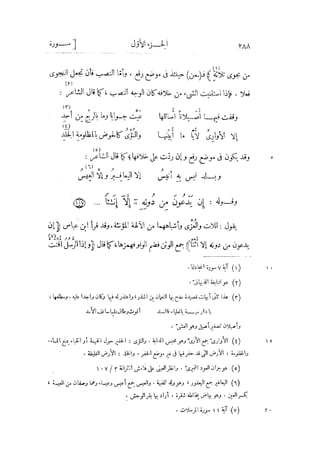 ٢٨٨ الجــزء الأول [ســورة
من نجوى ثلاثة (١)) فـ(ـمن) حينئذ فى موضع رفع . وأمّا النصب فأن تجعل النجوى
فعلا . فإذا استثنيت الشىء من خلافه كان الوجه النصب ، كما قال الشاعر (٢) :
وقفت فيهــا أصــيلانا أسائلها عيّت جــوابا وما بالربع من أحد (٣)
إلا الأوارىّ لأيا ما أبيّنهــا والنُّؤى كالحوض بالمظلومة الجلد (٤)
٥ وقد يكون فى موضع رفع وإن ردّت على خلافها ؛ كما قال الشاعر (٥) :
وبــلد ليس به أنيس إلا اليعافــير وإلا العيس (٦)
وقــوله : إِن يَدْعُونَ مِن دُونِهِۦٓ إِلَّآ إِنَـٰثًا ... ١١٧
يقول : اللات والعُزّى وأشباههما من الآلهة المؤنّثة . وقد قرأ ابن عباس (إن
يدعون من دونه إلا أُثُنا) جمع الوثن فضم الواو فهمزها ، كما قال (وإذا الرسل أُقّتت (٧))
١٠ (١) آية ٧ سورة المجادلة .
(٢) هو النابغة الذبيانى .
(٣) هذا من أبيات قصيدة مدح بها النعمان بن المنذر واعتذر له فيها وكان واجدا عليه . ومطلعها :
يا دار ميــة بالعلياء فالسند أقوت وطال عليها سالف الأمد
وأصيلان تصغير أصيل وهو العشى .
١٥ (٤) الأوارىّ جمع الآرىّ وهو محبس الدابة . والنؤى : الحفير حول الخيمة أو الخباء يمنع الماء .
والمظلومة : الأرض التى قد حفر فيها فى غير موضع الحفر . والجلد : الأرض الغليظة .
(٥) هو جران العود النميرى . وانظر العينى على هامش الخزانة ٣ / ١٠٧
(٦) اليعافير جمع اليعفور ؛ وهو ولد الظبية . والعيس جمع أعيس وعيساء وهما وصفان من العيسة ؛
بكسر العين . وهو بياض يخالطه شقرة . أراد بها بقر الوحش .
٢٠ (٧) آية ١١ سورة المرسلات .